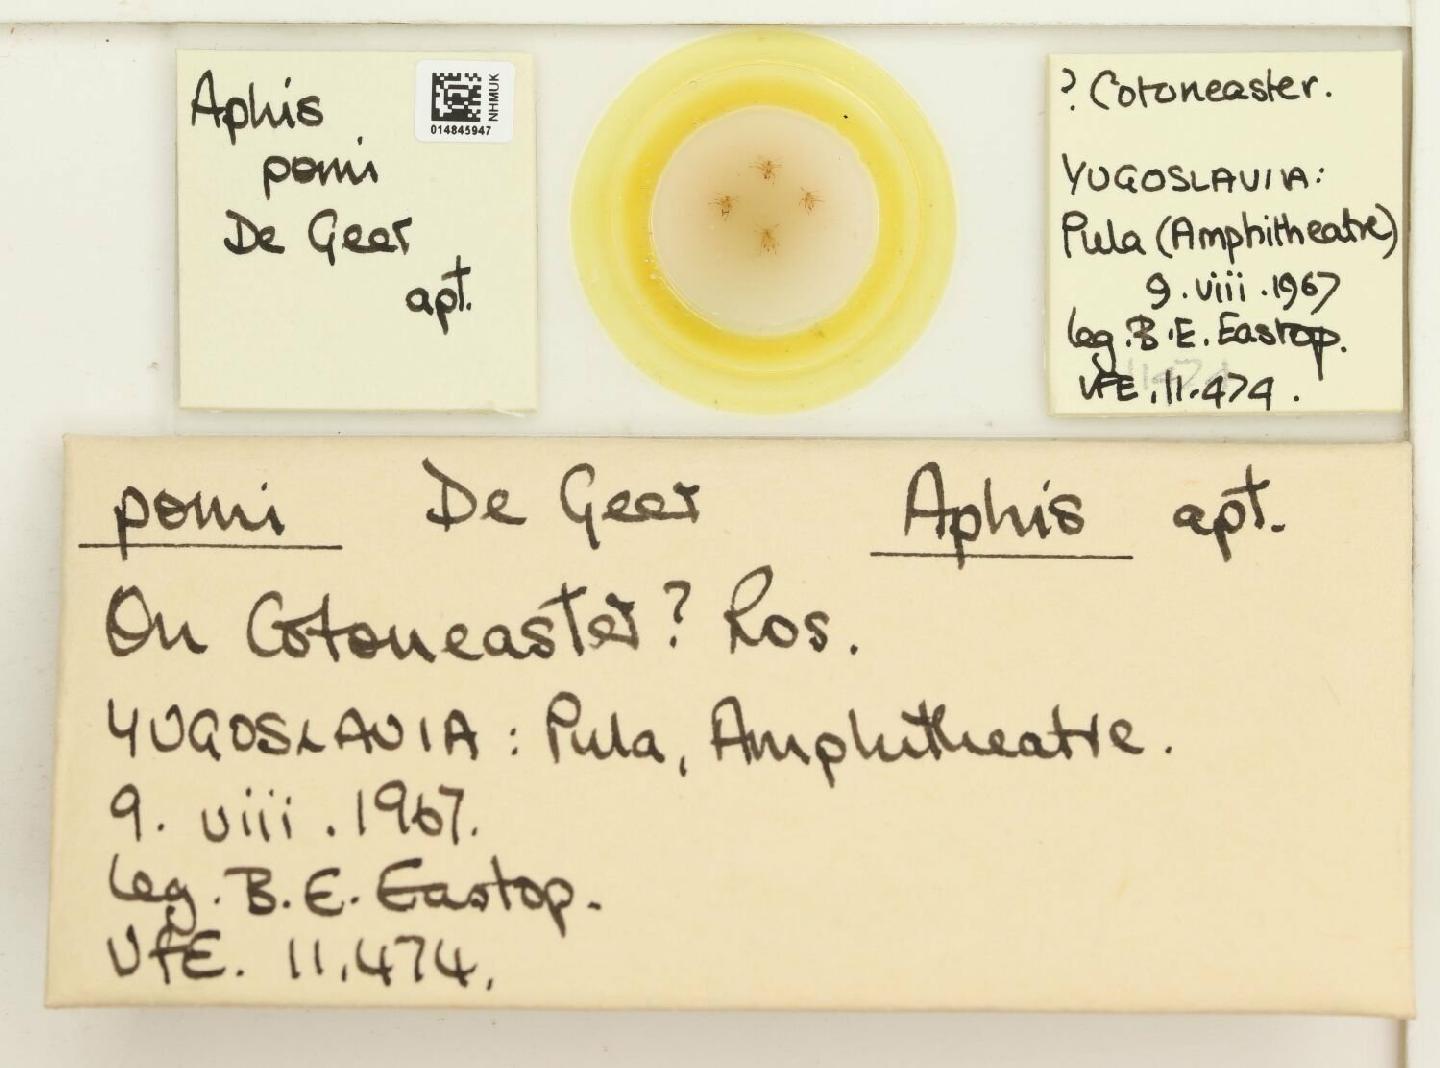 Aphis
pomi
De Geer
apt.
NHMUK
014845947
? Cotoneaster.
YUGOSLAVIA:
Pula (Amphitheatre)
9.viii.1967
leg. B.E. Eastop.
VFE. 11.474.
pomi De Geer Aphis apt.
On Cotoneaster? Ros.
YUGOSLAVIA: Pula, Amphitheatre.
9. viii. 1967.
leg. B.E. Eastop.
VFE. 11,474.